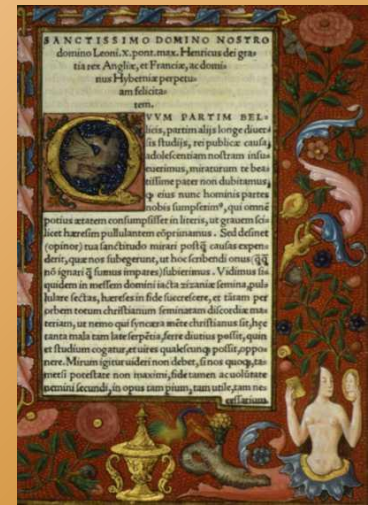 SANCTISSIMO DOMINO NOSTRO
domino Leoni.X.pont.max. Henricus dei gra-
tia rex Angliæ, et Franciæ, ac domi-
nus Hyberniæ perpetu-
am felicita-
tem.
QVVM PARTIM BEL-
licis, partim alijs longe diuer-
sis studijs, rei publicæ causa,
adolescentiam nostram insu-
euerimus, miraturum te bea-
tissime pater non dubitamus,
ꝙ eius nunc hominis partes
nobis sumpserimꝰ, qui omnē
potius ætatem consumpsisset in literis, ut grauem sci-
licet hæresim pullulantem cōprimamus. Sed desinet
(opinor) tua sanctitudo mirari postꝙ̃ causas expen-
derit, quæ nos subegerunt, ut hoc scribendi onus (ꝙꝙ̃
nō ignari ꝙ̃ sumus impares) subierimus. Vidimus si-
quidem in messem domini iacta zizaniæ semina, pul-
lulare sectas, hæreses in fide succrescere, et tātam per
orbem totum christianum seminatam discordiæ ma-
teriam, ut nemo qui syncæra mēte christianus sit, hęc
tanta mala tam late serpētia, ferre diutius possit, quin
et studium cogatur, et uires qualescunꝙ possit, oppo-
nere. Mirum igitur uideri non debet, si nos quoꝙ, ta-
metsi potestate non maximi, fide tamen ac uolūtate
nemini secundi, in opus tam pium, tam utile, tam ne-
cessarium